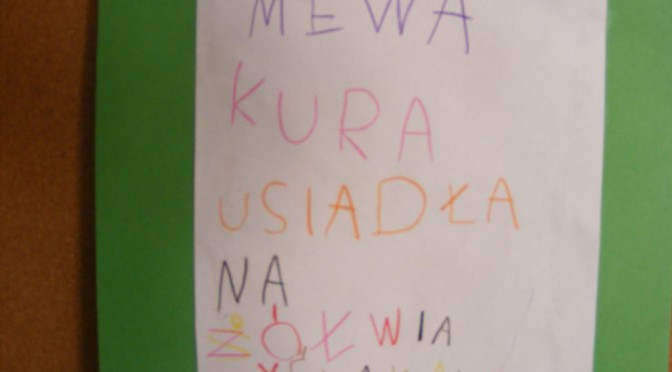 MEWA
KURA
USIADŁA
NA
ŻÓŁWIA